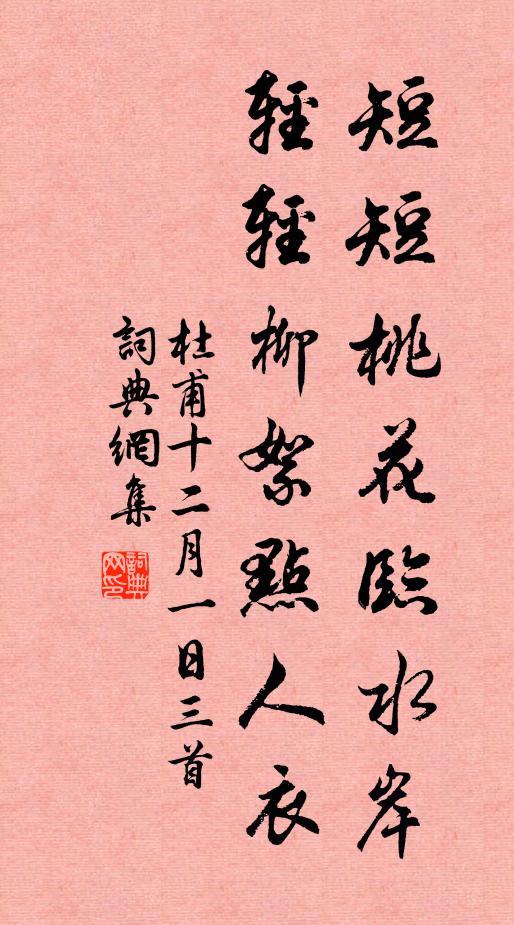 短短桃花臨水岸
輕輕柳絮點人衣
杜甫十二月一日三首
詞典網集
詞典網印